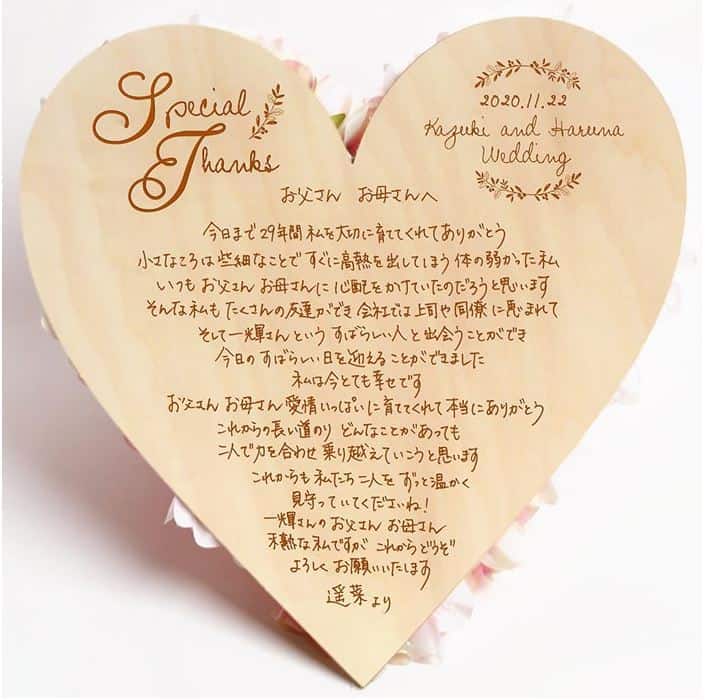 Special
Thanks
2020.11.22
Kazuki and Haruna
Wedding
お父さん お母さんへ
今日まで29年間私を大切に育ててくれてありがとう
小さなころは些細なことで すぐに高熱を出してしまう 体の弱かった私
いつも お父さん お母さんに 心配をかけていたのだろうと思います
そんな私も たくさんの友達ができ 会社では上司や同僚に恵まれて
そして一輝さんという すばらしい人と出会うことができ
今日のすばらしい日を迎えることができました
私は今とても幸せです
お父さん お母さん 愛情いっぱいに育ててくれて本当にありがとう
これからの長い道のり どんなことがあっても
二人で力を合わせ 乗り越えていこうと思います
これからも私たち二人を ずっと温かく
見守っていてくださいね！
一輝さんのお父さん お母さん
未熟な私ですが これからどうぞ
よろしく お願いいたします
遥菜より